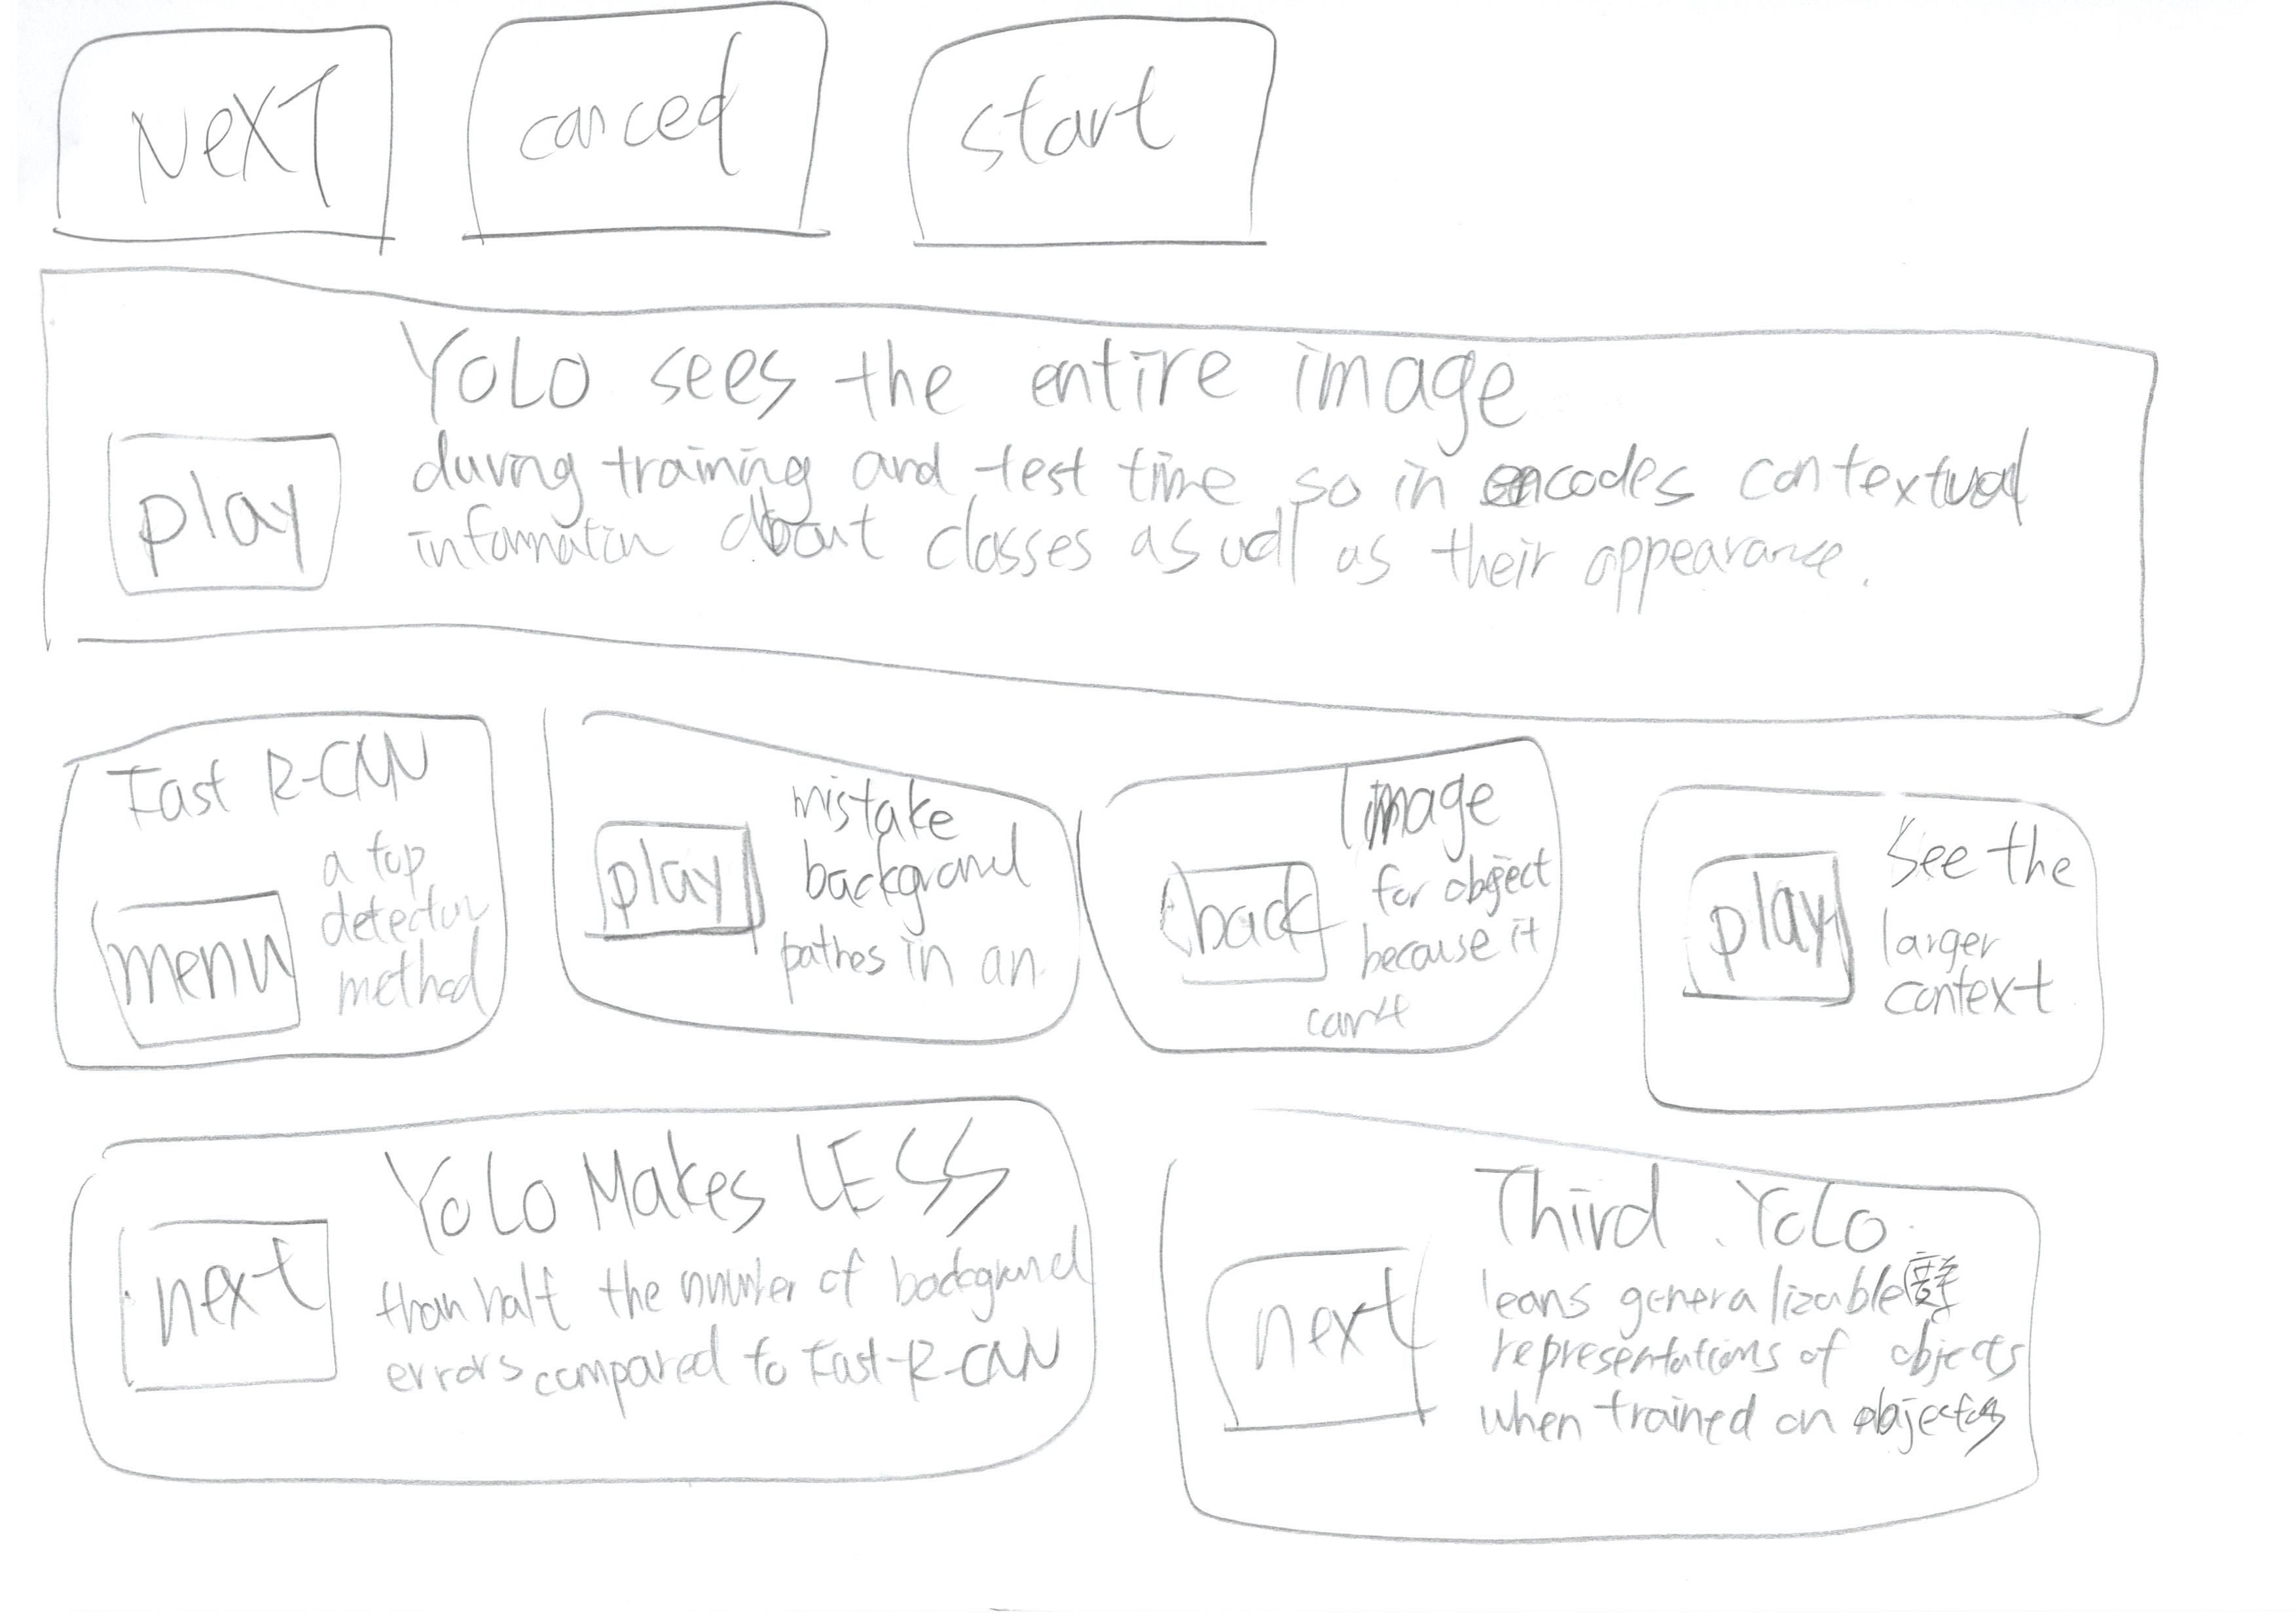 NexT
canced
start
YoLo sees the entire image
during training and test time so in encodes contextual
information about classes as well as their appearance.
play
Fast R-CNN
a top
detector
method
menu
mistake
background
pathes in an
play
Image
for object
because it
can't
back
See the
larger
context
play
YoLo Makes LESS
than half the number of background
errors compared to Fast-R-CNN
next
Third. YoLo
leans generalizable
representations of objects
when trained on objects
next